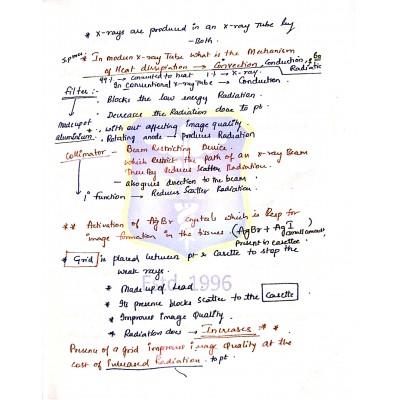 * x-rays are produced in an x-ray Tube by
- Both.
* In modern x-ray Tube what is the Mechanism
of Heat dissipation → Convection, Conduction, &
Radiatic
99% → converted to heat 1% → x-ray.
In Conventional x-ray Tube → Conduction.
Filter:-
- Blocks the low energy Radiation.
- Decreases the Radiation dose to pt.
Made up of
aluminium.
- with out affecting image quality.
. Rotating anode → produces Radiation
Collimator - Beam Restricting Device
which Restrict the path of an x-ray Beam
There By Reduces Scatter Radiation.
- also gives direction to the beam.
1° function → Reduces Scatter Radiation.
** Activation of AgBr crystals which is Resp for
image formation in the tissues (AgBr + AgI
(small amount)
present in casettee.
* Grid is placed between pt & Casette to stop the
weak rays.
Estd. 1996
* Made up of Lead
* Its presence blocks scatter to the Casette
* Improves Image Quality.
* Radiation dose → Increases * *
Presence of a grid improves image Quality at the
cost of Increased Radiation to pt.